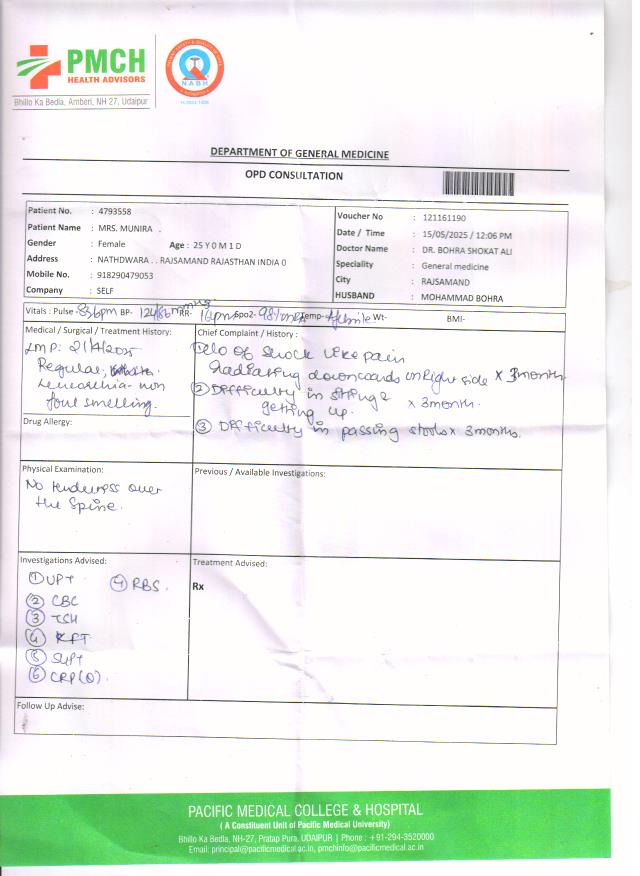 PMCH
HEALTH ADVISORS
Bhillo Ka Bedla, Amberi, NH 27, Udaipur
NABH
DEPARTMENT OF GENERAL MEDICINE
OPD CONSULTATION
Patient No. : 4793558
Patient Name : MRS. MUNIRA .
Gender : Female Age : 25 Y 0 M 1 D
Address : NATHDWARA . . RAJSAMAND RAJASTHAN INDIA 0
Mobile No. : 918290479053
Company : SELF
Voucher No : 121161190
Date / Time : 15/05/2025 / 12:06 PM
Doctor Name : DR. BOHRA SHOKAT ALI
Speciality : General medicine
City : RAJSAMAND
HUSBAND : MOHAMMAD BOHRA
Vitals : Pulse - BP- 124/86 mmHg RR- Spo2- 98% Temp- Afebrile Wt- BMI-
Medical / Surgical / Treatment History:
LMP: 21/4/2025
Regular,
Leucorrhia - non
foul smelling.
Drug Allergy:
Chief Complaint / History :
① c/o of shock like pain
Radiating downwards in Right side x 3month
② Difficulty in sitting &
getting up. x 3month.
③ Difficulty in passing stools x 3months.
Physical Examination:
No tenderness over
the Spine.
Previous / Available Investigations:
Investigations Advised:
① UPT ④ RBS.
② CBC
③ TSH
④ KFT
⑤ SGPT
⑥ CRP(Q).
Treatment Advised:
Rx
Follow Up Advise:
PACIFIC MEDICAL COLLEGE & HOSPITAL
( A Constituent Unit of Pacific Medical University)
Bhillo Ka Bedla, NH-27, Pratap Pura, UDAIPUR | Phone : +91-294-3520000
Email: principal@pacificmedical.ac.in, pmchinfo@pacificmedical.ac.in